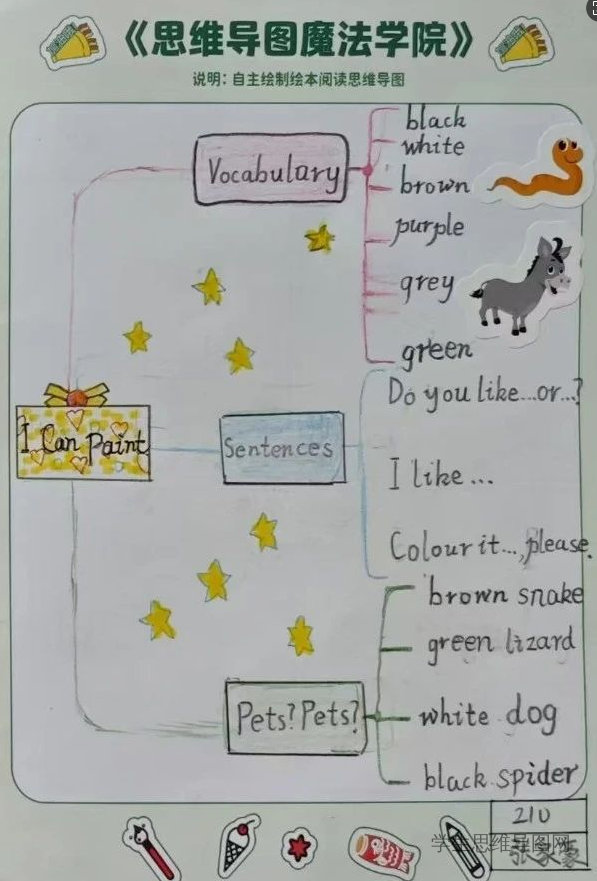 《思维导图魔法学院》
说明：自主绘制绘本阅读思维导图
Vocabulary
black
white
brown
purple
grey
green
I Can Paint
Sentences
Do you like...or...?
I like...
Colour it...,please.
Pets? Pets?
brown snake
green lizard
white dog
black spider
210
学生思维导图网